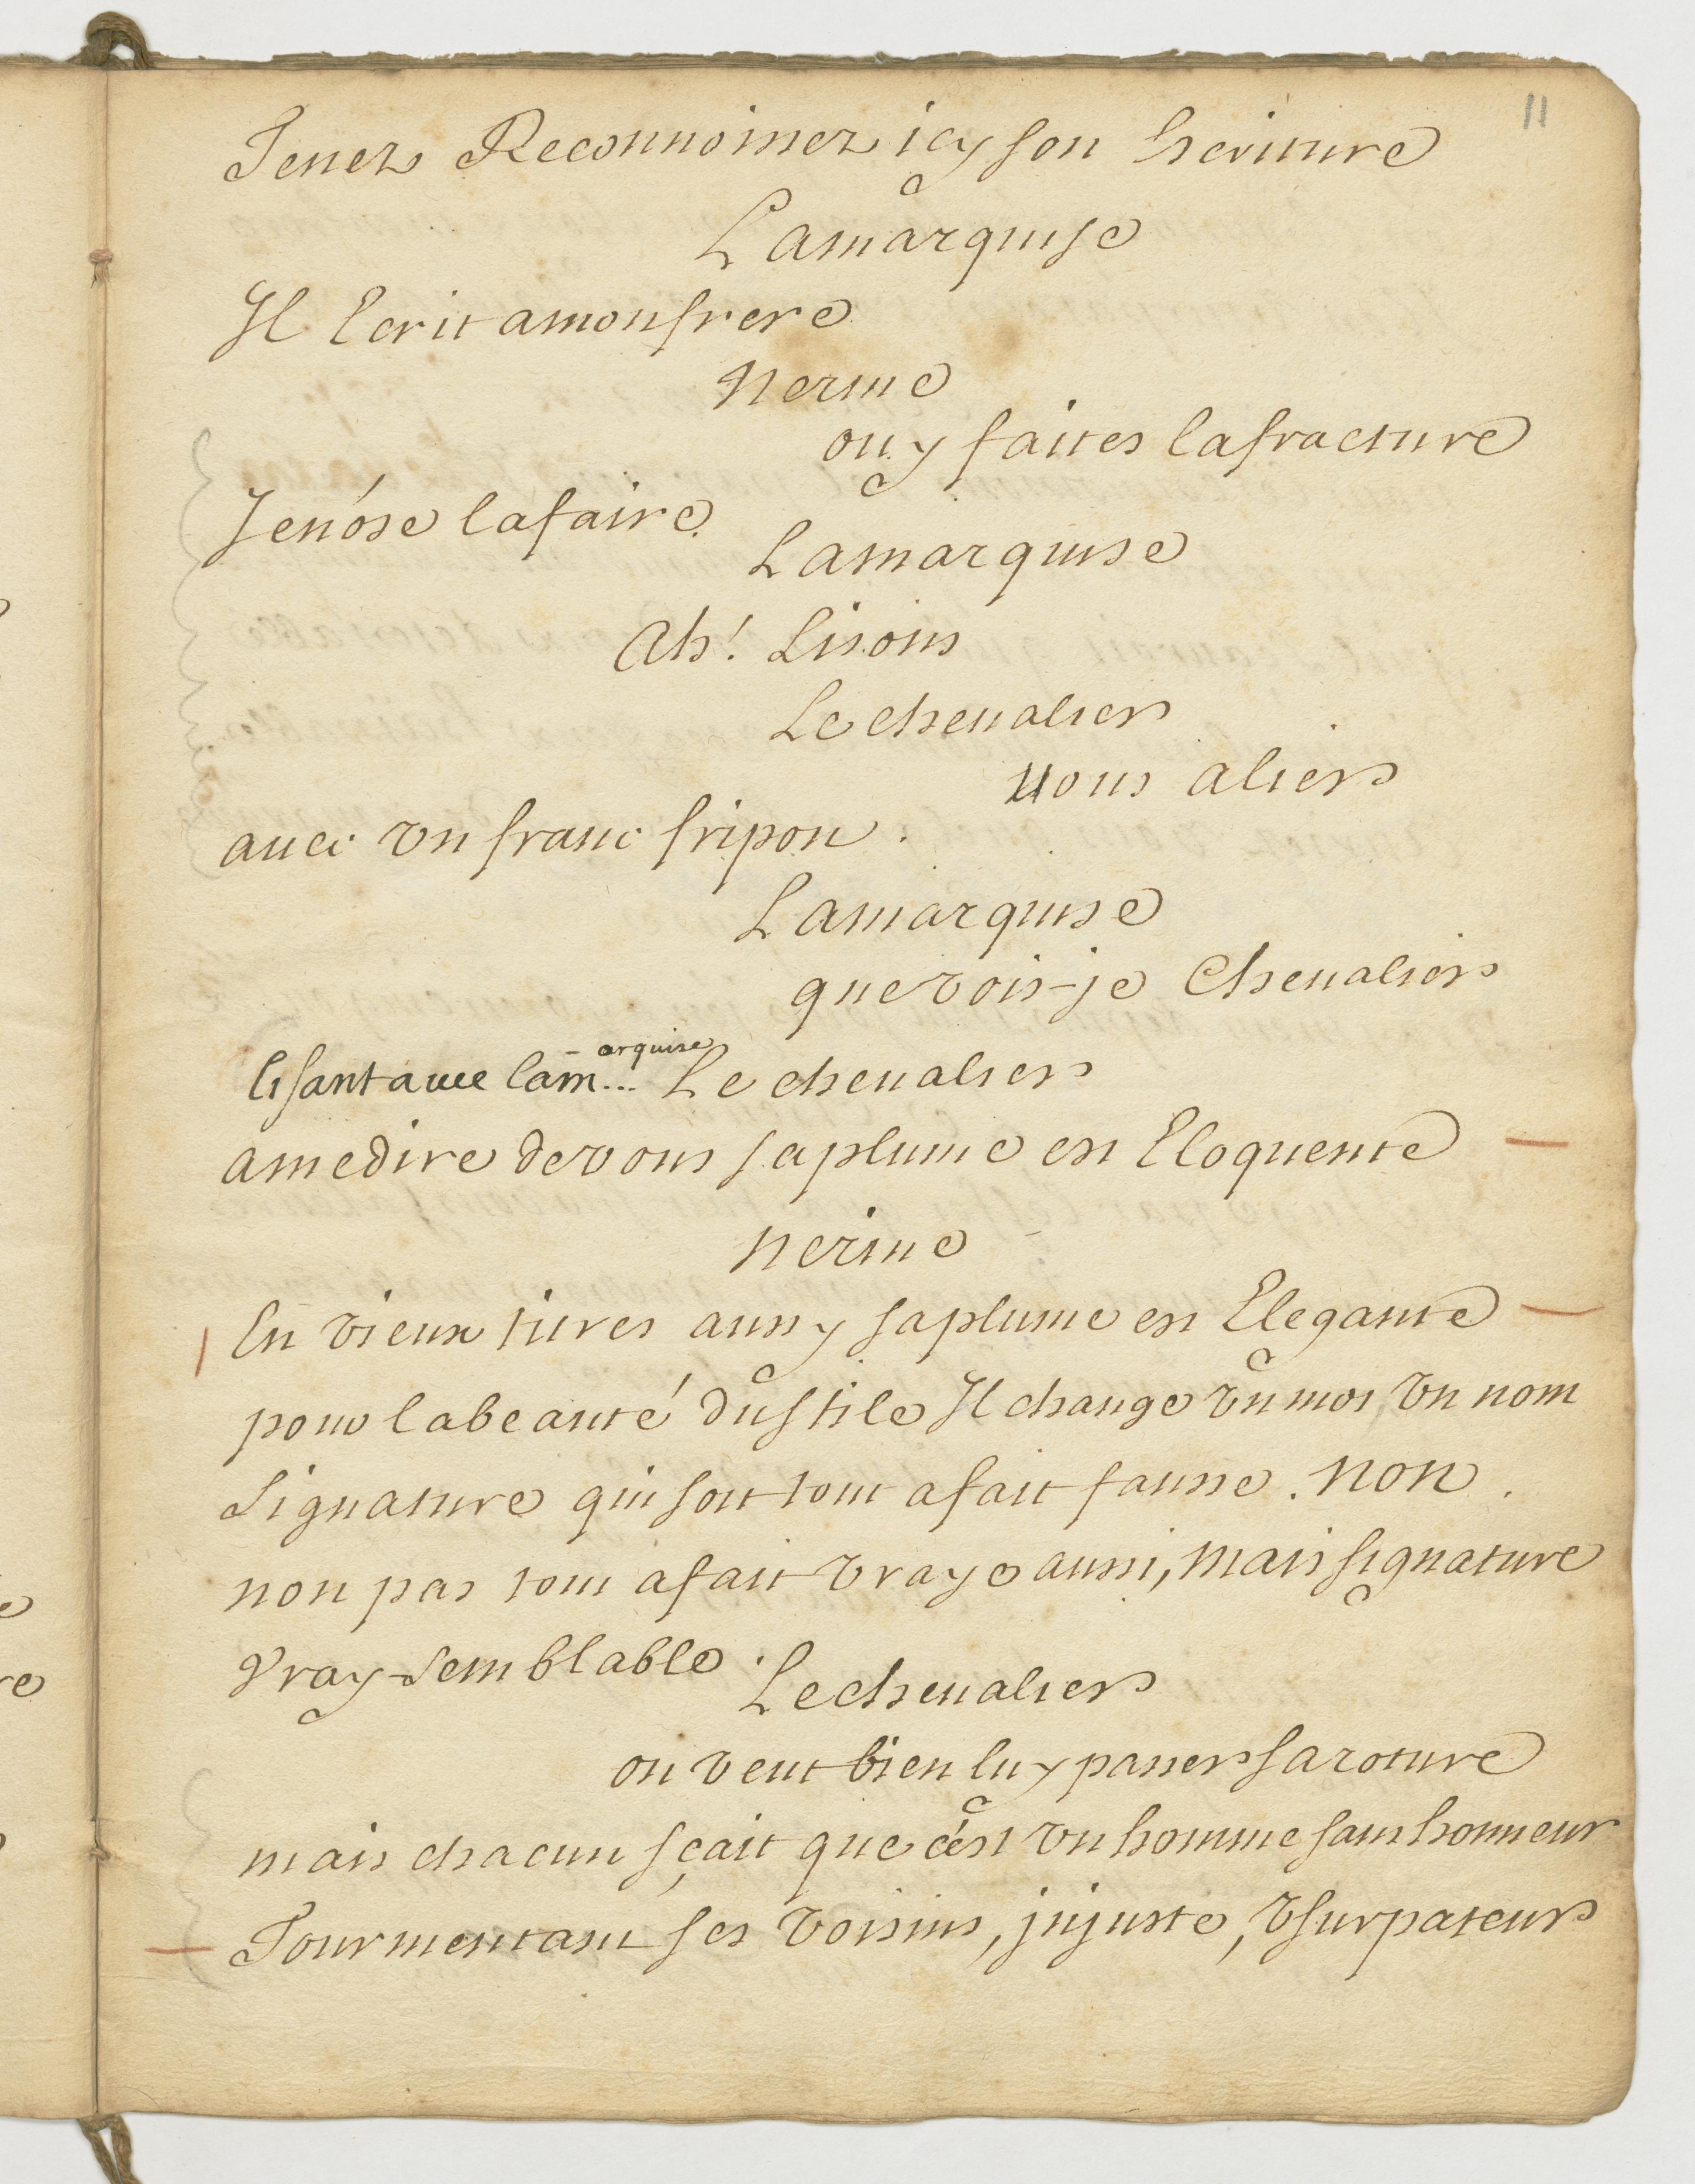 11
Tenez Reconnoissez icy son Ecriture
Lamarquise
Il Ecrit amonfrere
Nerine
ouy faites lafracture
Jenóse lafaire.
Lamarquise
Ah! Lisons
Le chevalier
vous alier
avec un franc fripon.
Lamarquise
que vois-je Chevalier
lisant avec lam... arquise Le chevalier
amedire devous saplume est Eloquente
Nerine
En vieux titres aussy saplume est Elegante
pour labeauté dustile Il change un mot, un nom
signature qui soit tout afait fausse. Non.
non pas tout afait vraye aussi, mais signature
vray-semblable.
Lechevalier
on veut bien luy passer saroture
mais chacun sçait que cést un homme sans honneur
Tourmentant ses voisins, injuste, usurpateur